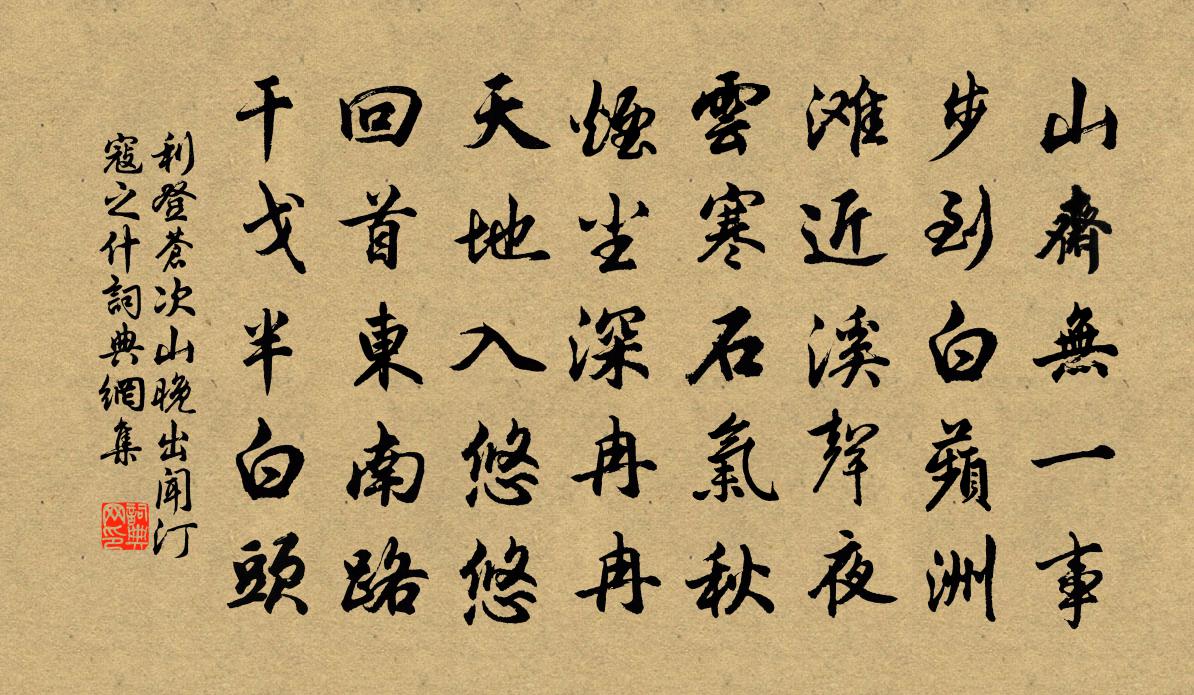 山齋無一事
步到白蘋洲
滩近溪聲夜
雲寒石氣秋
煙尘深冉冉
天地入悠悠
回首東南路
干戈半白頭
利登蒼次山晚出闻汀
寇之什詞典網集
詞典网印